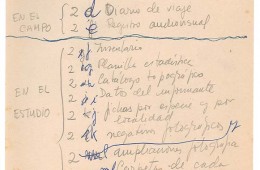 EN EL CAMPO
2 d Diario de viaje
2 e Registro audiovisual
EN EL ESTUDIO
2 Inventario
2 Planilla estadística
2 Catálogo topográfico
2 Datos del informante
2 fichas por especie y por
localidad
2 negativos fotográficos y
2 ampliaciones fotográfica
Carpeta de cada